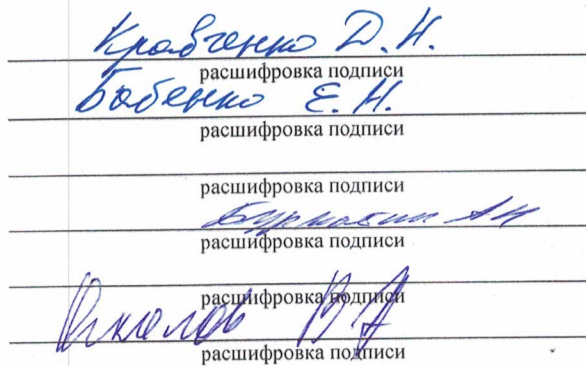 Кравченко Д.Н.
расшифровка подписи
Бабенко Е.Н.
расшифровка подписи
расшифровка подписи
расшифровка подписи
расшифровка подписи
В А
расшифровка подписи